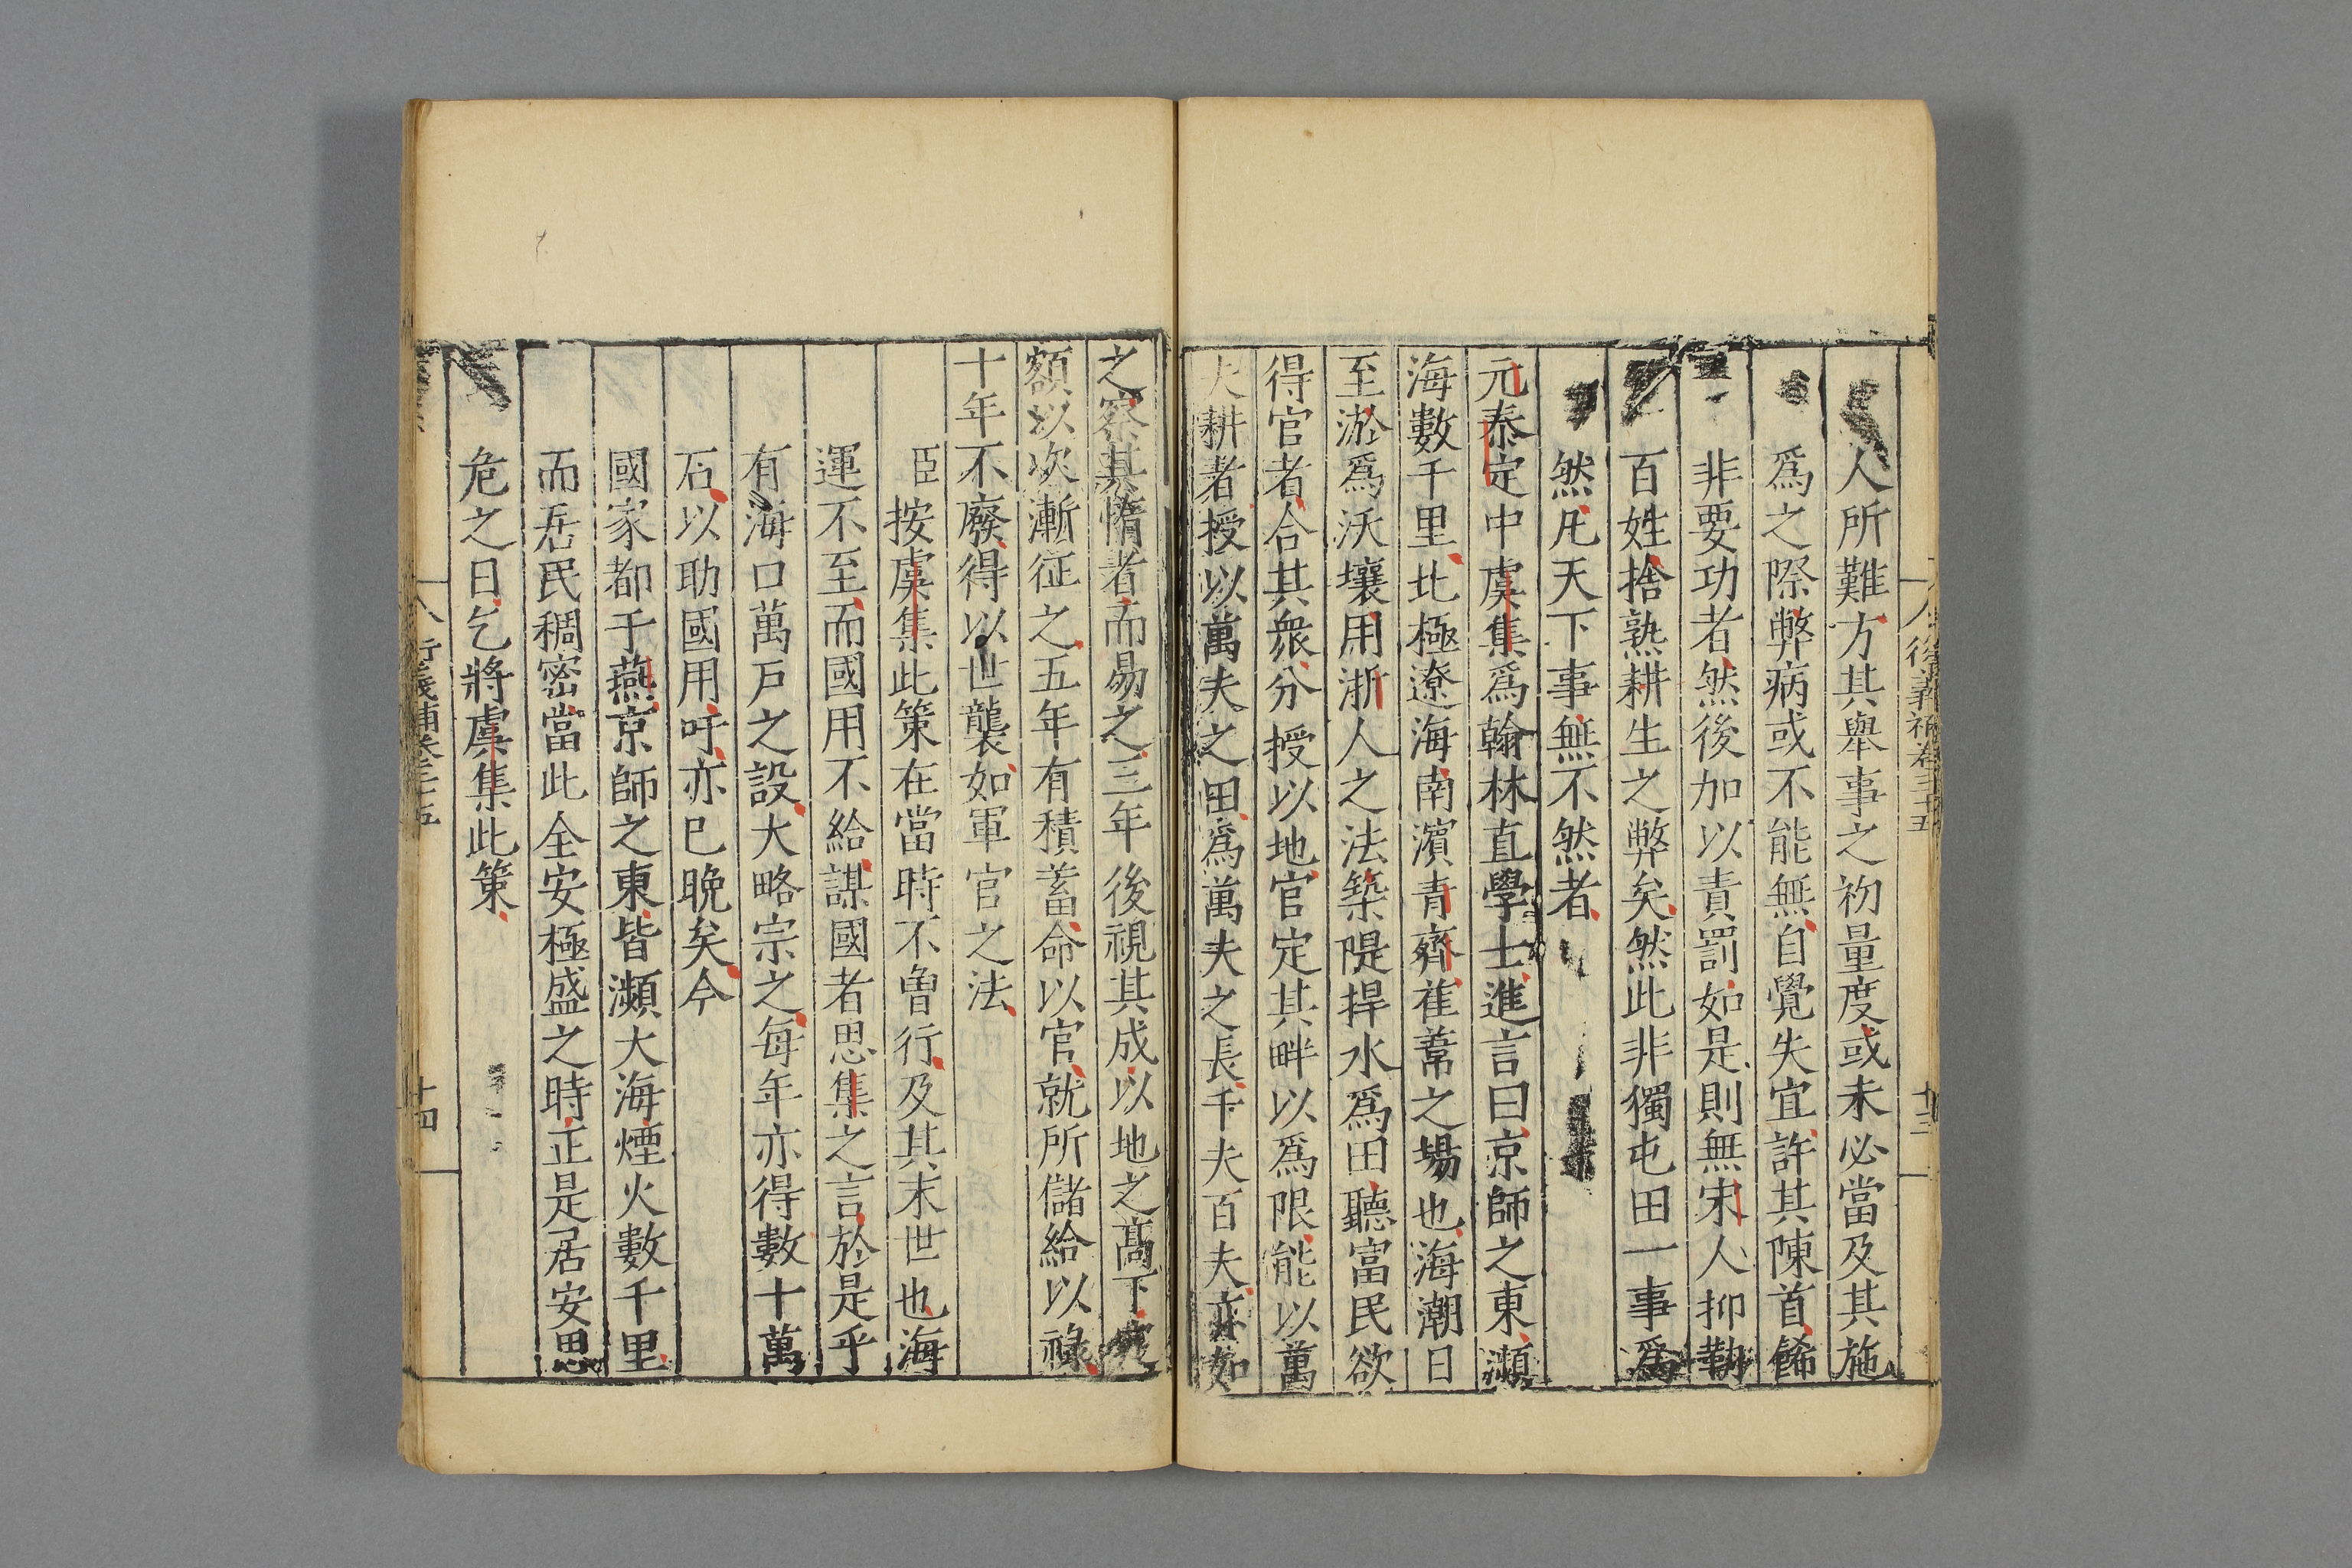 人所難方其舉事之初量度或未必當及其施
爲之際弊病或不能無自覺失宜許其陳首餙
非要功者然後加以責罰如是則無宋人抑勒
百姓捨熟耕生之弊矣然此非獨屯田一事爲
然凡天下事無不然者
元泰定中虞集爲翰林直學士進言曰京師之東瀕
海數千里北極遼海南濵青齊萑葦之場也海潮日
至淤爲沃壤用浙人之法築隄捍水爲田聽富民欲
得官者合其衆分授以地官定其畔以爲限能以萬
夫耕者授以萬夫之田爲萬夫之長千夫百夫亦如
之察其惰者而易之三年後視其成以地之髙下定
額以次漸征之五年有積蓄命以官就所儲給以祿
十年不廢得以世襲如軍官之法
臣按虞集此策在當時不曾行及其末世也海
運不至而國用不給謀國者思集之言於是乎
有海口萬戶之設大略宗之每年亦得數十萬
石以助國用吁亦已晚矣今
國家都于燕京師之東皆瀕大海煙火數千里
而居民稠密當此全安極盛之時正是居安思
危之日乞將虞集此策
衍義補卷三十五
十四